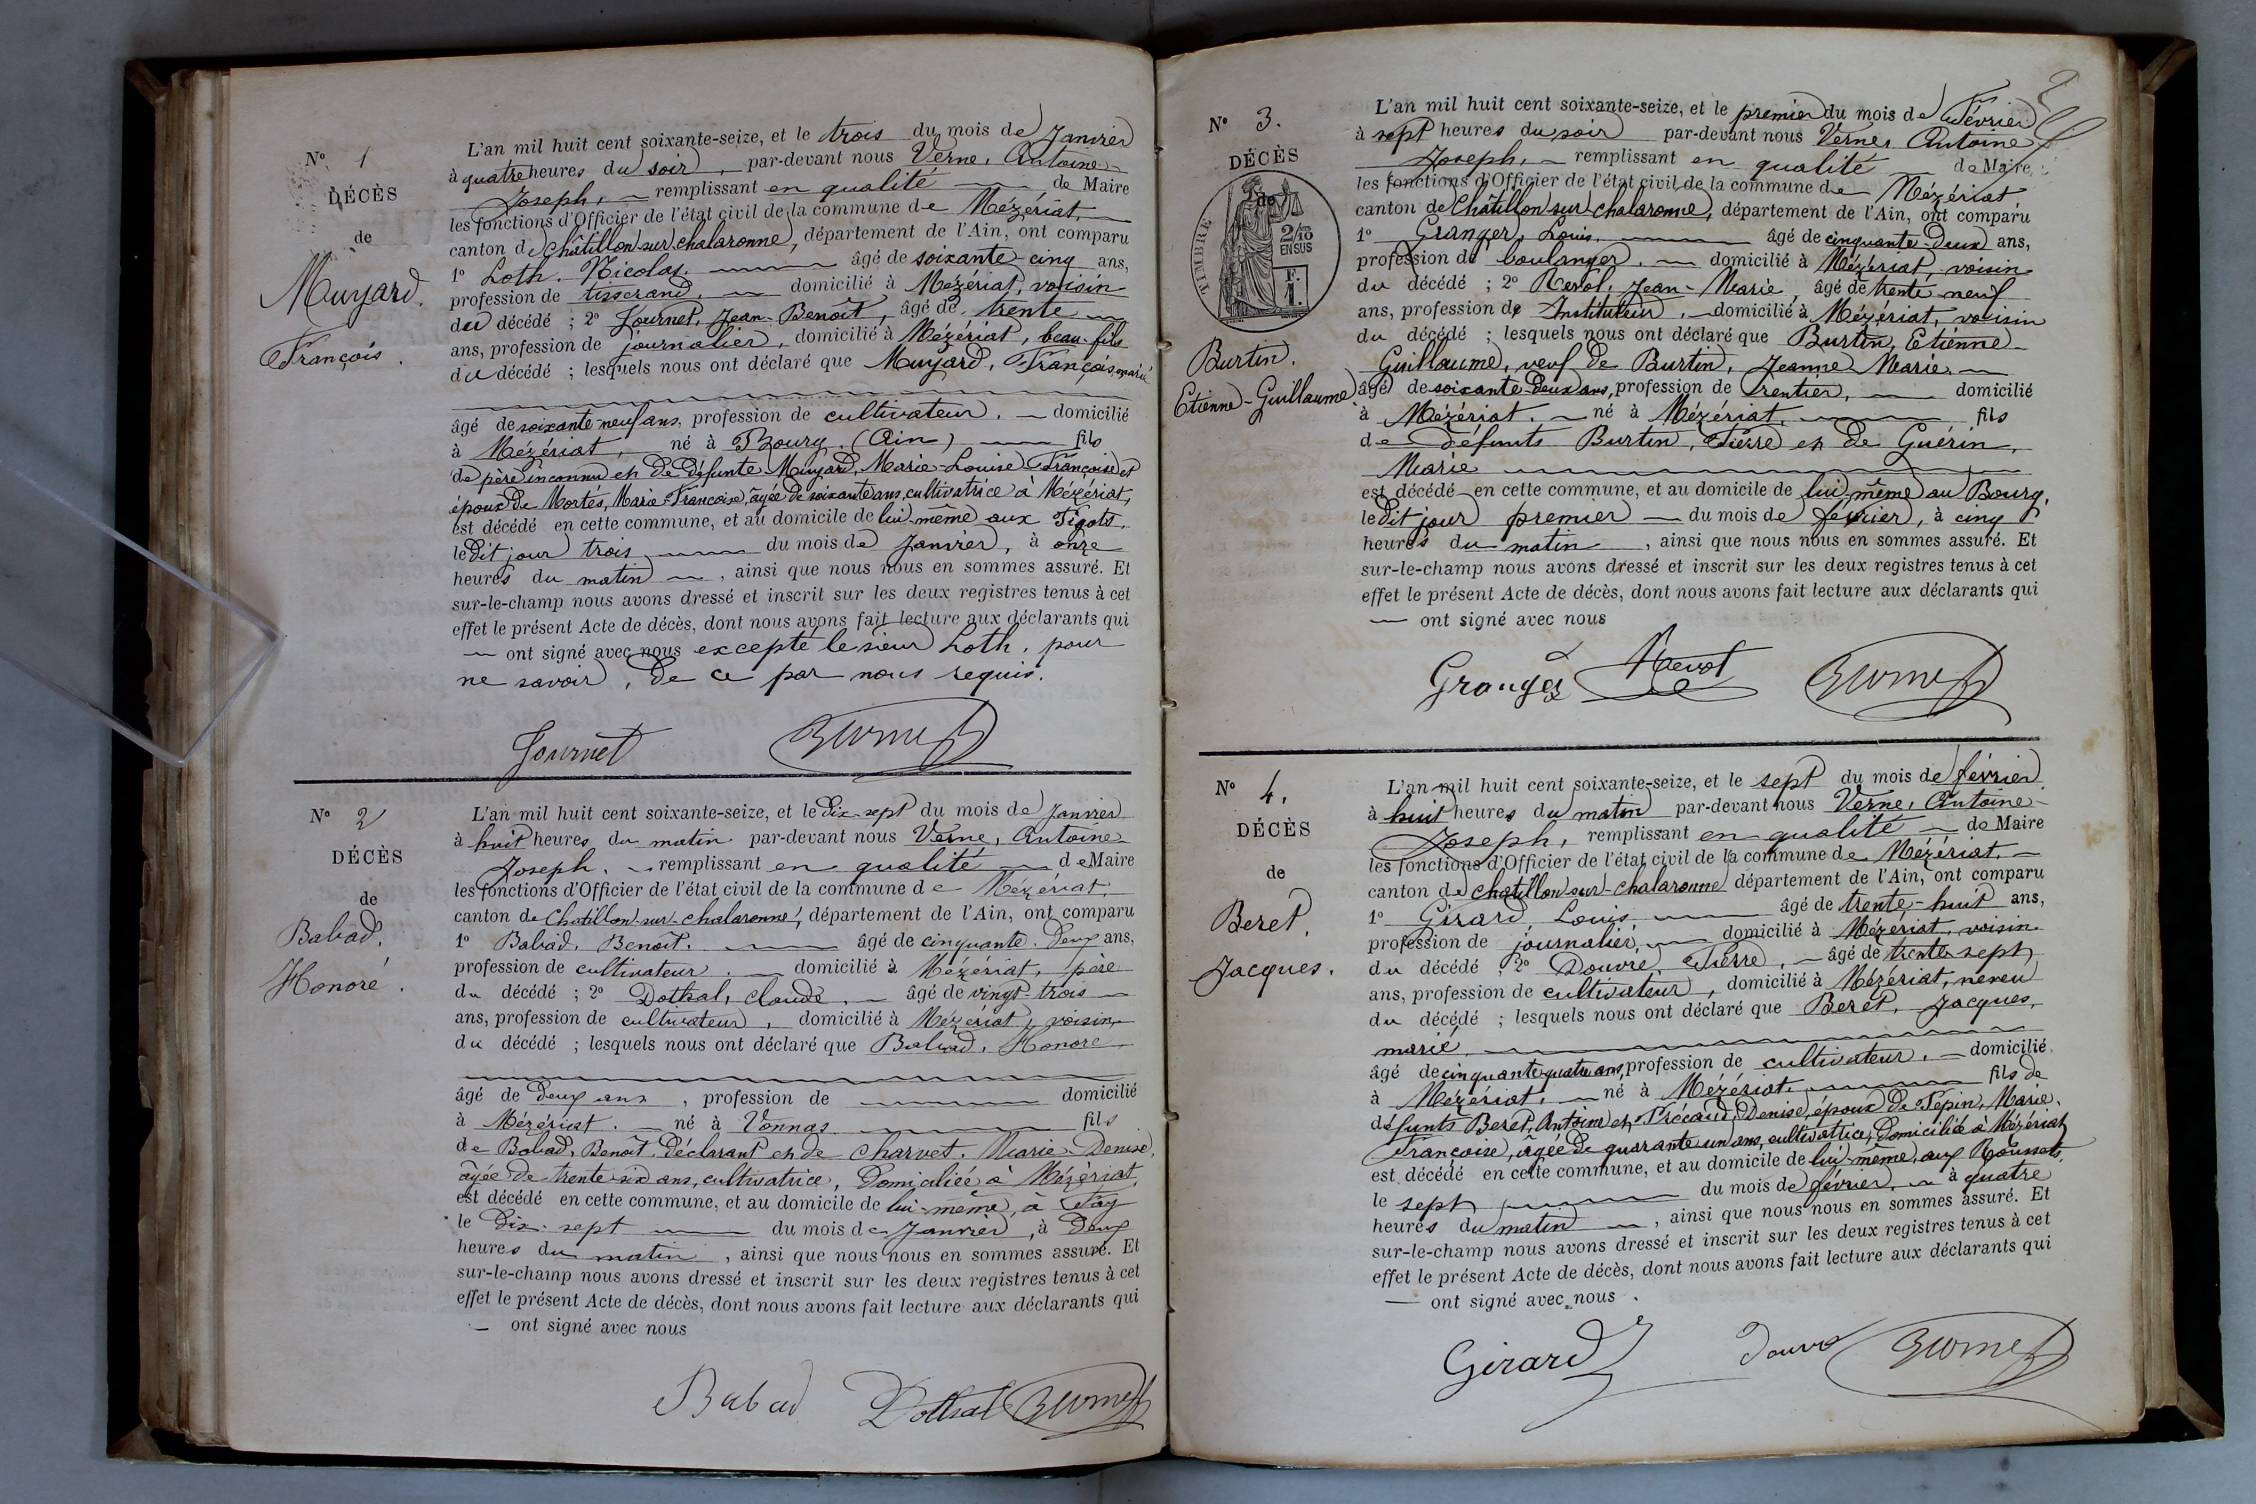 N° 1
DÉCÈS
de
Muyard.
François.
L'an mil huit cent soixante-seize, et le trois du mois de Janvier
à quatre heures du soir, par-devant nous Verne, Antoine
Joseph, remplissant en qualité de Maire
les fonctions d'Officier de l'état civil de la commune de Mézériat,
canton de Châtillon sur chalaronne, département de l'Ain, ont comparu
1° Loth, Nicolas, âgé de soixante cinq ans,
profession de tisserand, domicilié à Mézériat, voisin
du décédé ; 2° Journet, Jean-Benoît, âgé de trente
ans, profession de journalier, domicilié à Mézériat, beau-fils
du décédé ; lesquels nous ont déclaré que Muyard, François, marié
âgé de soixante neuf ans, profession de cultivateur, domicilié
à Mézériat, né à Bourg (Ain) fils
de père inconnu et de défunte Muyard, Marie-Louise Françoise et
époux de Mortés, Marie-Françoise, âgée de soixante ans, cultivatrice à Mézériat,
est décédé en cette commune, et au domicile de lui-même aux Tigots,
le dit jour trois du mois de Janvier, à onze
heures du matin, ainsi que nous nous en sommes assuré. Et
sur-le-champ nous avons dressé et inscrit sur les deux registres tenus à cet
effet le présent Acte de décès, dont nous avons fait lecture aux déclarants qui
ont signé avec nous excepté le sieur Loth, pour
ne savoir, de ce par nous requis.
Journet
N° 2
DÉCÈS
de
Babad,
Honoré.
L'an mil huit cent soixante-seize, et le dix-sept du mois de Janvier
à huit heures du matin par-devant nous Verne, Antoine
Joseph, remplissant en qualité de Maire
les fonctions d'Officier de l'état civil de la commune de Mézériat
canton de Chatillon-sur-chalaronne, département de l'Ain, ont comparu
1° Babad, Benoît, âgé de cinquante-deux ans,
profession de cultivateur, domicilié à Mézériat, père
du décédé ; 2° Dothal, claude, âgé de vingt-trois
ans, profession de cultivateur, domicilié à Mézériat, voisin
du décédé ; lesquels nous ont déclaré que Babad, Honoré
âgé de deux ans, profession de domicilié
à Mézériat. né à Vonnas fils
de Babad, Benoît, déclarant et de Charvet, Marie-Denise,
âgée de trente-six ans, cultivatrice, domiciliée à Mézériat,
est décédé en cette commune, et au domicile de lui-même, à
le dix-sept du mois de Janvier, à deux
heures du matin, ainsi que nous nous en sommes assuré. Et
sur-le-champ nous avons dressé et inscrit sur les deux registres tenus à cet
effet le présent Acte de décès, dont nous avons fait lecture aux déclarants qui
ont signé avec nous
Babad Dothal
N° 3.
DÉCÈS
de
TIMBRE
2/10
EN SUS
F.
1.
Burtin.
Etienne-Guillaume
L'an mil huit cent soixante-seize, et le premier du mois de Février
à sept heures du soir par-devant nous Verne, Antoine
Joseph, remplissant en qualité de Maire,
les fonctions d'Officier de l'état civil de la commune de Mézériat
canton de Châtillon sur chalaronne, département de l'Ain, ont comparu
1° Granger, Louis, âgé de cinquante-deux ans,
profession de boulanger, domicilié à Mézériat, voisin
du décédé ; 2° Revol, Jean-Marie, âgé de trente neuf
ans, profession de Instituteur, domicilié à Mézériat, voisin
du décédé ; lesquels nous ont déclaré que Burtin, Etienne
Guillaume, veuf de Burtin, Jeanne Marie,
âgé de soixante-deux ans, profession de rentier, domicilié
à Mézériat. né à Mézériat, fils
de défunts Burtin, Pierre et de Guérin,
Marie
est décédé en cette commune, et au domicile de lui-même au Bourg,
le dit jour premier du mois de février, à cinq
heures du matin, ainsi que nous nous en sommes assuré. Et
sur-le-champ nous avons dressé et inscrit sur les deux registres tenus à cet
effet le présent Acte de décès, dont nous avons fait lecture aux déclarants qui
ont signé avec nous
Granger Revol
N° 4.
DÉCÈS
de
Beret,
Jacques.
L'an mil huit cent soixante-seize, et le sept du mois de février
à huit heures du matin par-devant nous Verne, Antoine
Joseph, remplissant en qualité de Maire
les fonctions d'Officier de l'état civil de la commune de Mézériat,
canton de chatillon sur-chalaronne département de l'Ain, ont comparu
1° Girard, Louis, âgé de trente-huit ans,
profession de journalier, domicilié à Mézériat, voisin
du décédé ; 2° Douvre, Pierre, âgé de trente sept
ans, profession de cultivateur, domicilié à Mézériat, neveu
du décédé ; lesquels nous ont déclaré que Beret, Jacques,
marié
âgé de cinquante quatre ans, profession de cultivateur, domicilié
à Mézériat, né à Mézériat, fils de
défunts Beret, Antoine et Denise, époux de Pepin, Marie-
Françoise, âgée de quarante un ans, cultivatrice, domiciliée à Mézériat
est décédé en cette commune, et au domicile de lui-même, aux Roussets,
le sept du mois de février, à quatre
heures du matin, ainsi que nous nous en sommes assuré. Et
sur-le-champ nous avons dressé et inscrit sur les deux registres tenus à cet
effet le présent Acte de décès, dont nous avons fait lecture aux déclarants qui
ont signé avec nous.
Girard Douvre